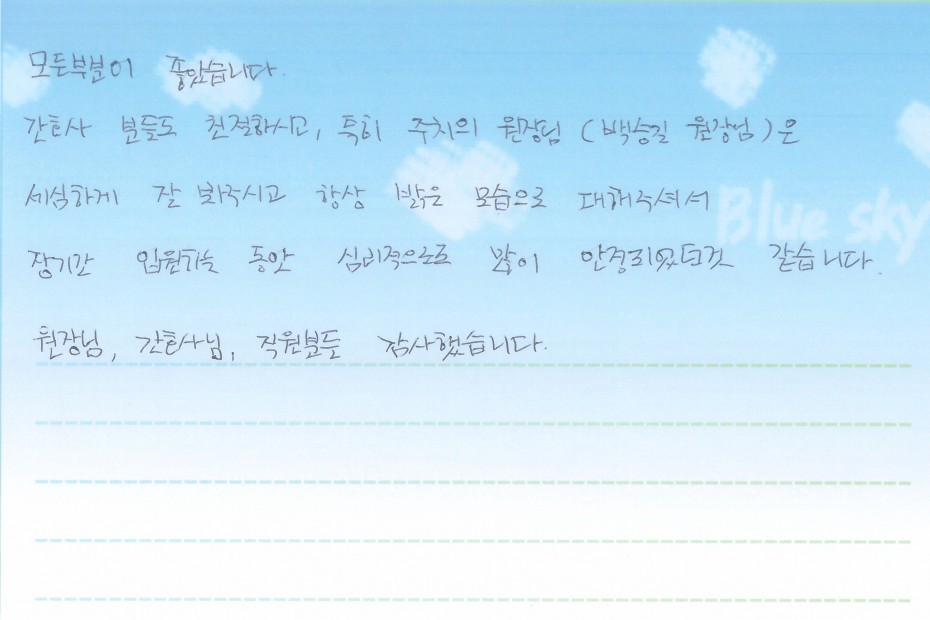 모든부분이 좋았습니다.
간호사 분들도 친절하시고, 특히 주치의 원장님 (백승길 원장님)은
세심하게 잘 봐주시고 항상 밝은 모습으로 대해주셔서
Blue sky
장기간 입원하는 동안 심리적으로도 많이 안정되었던것 같습니다.
원장님, 간호사님, 직원분들 감사했습니다.